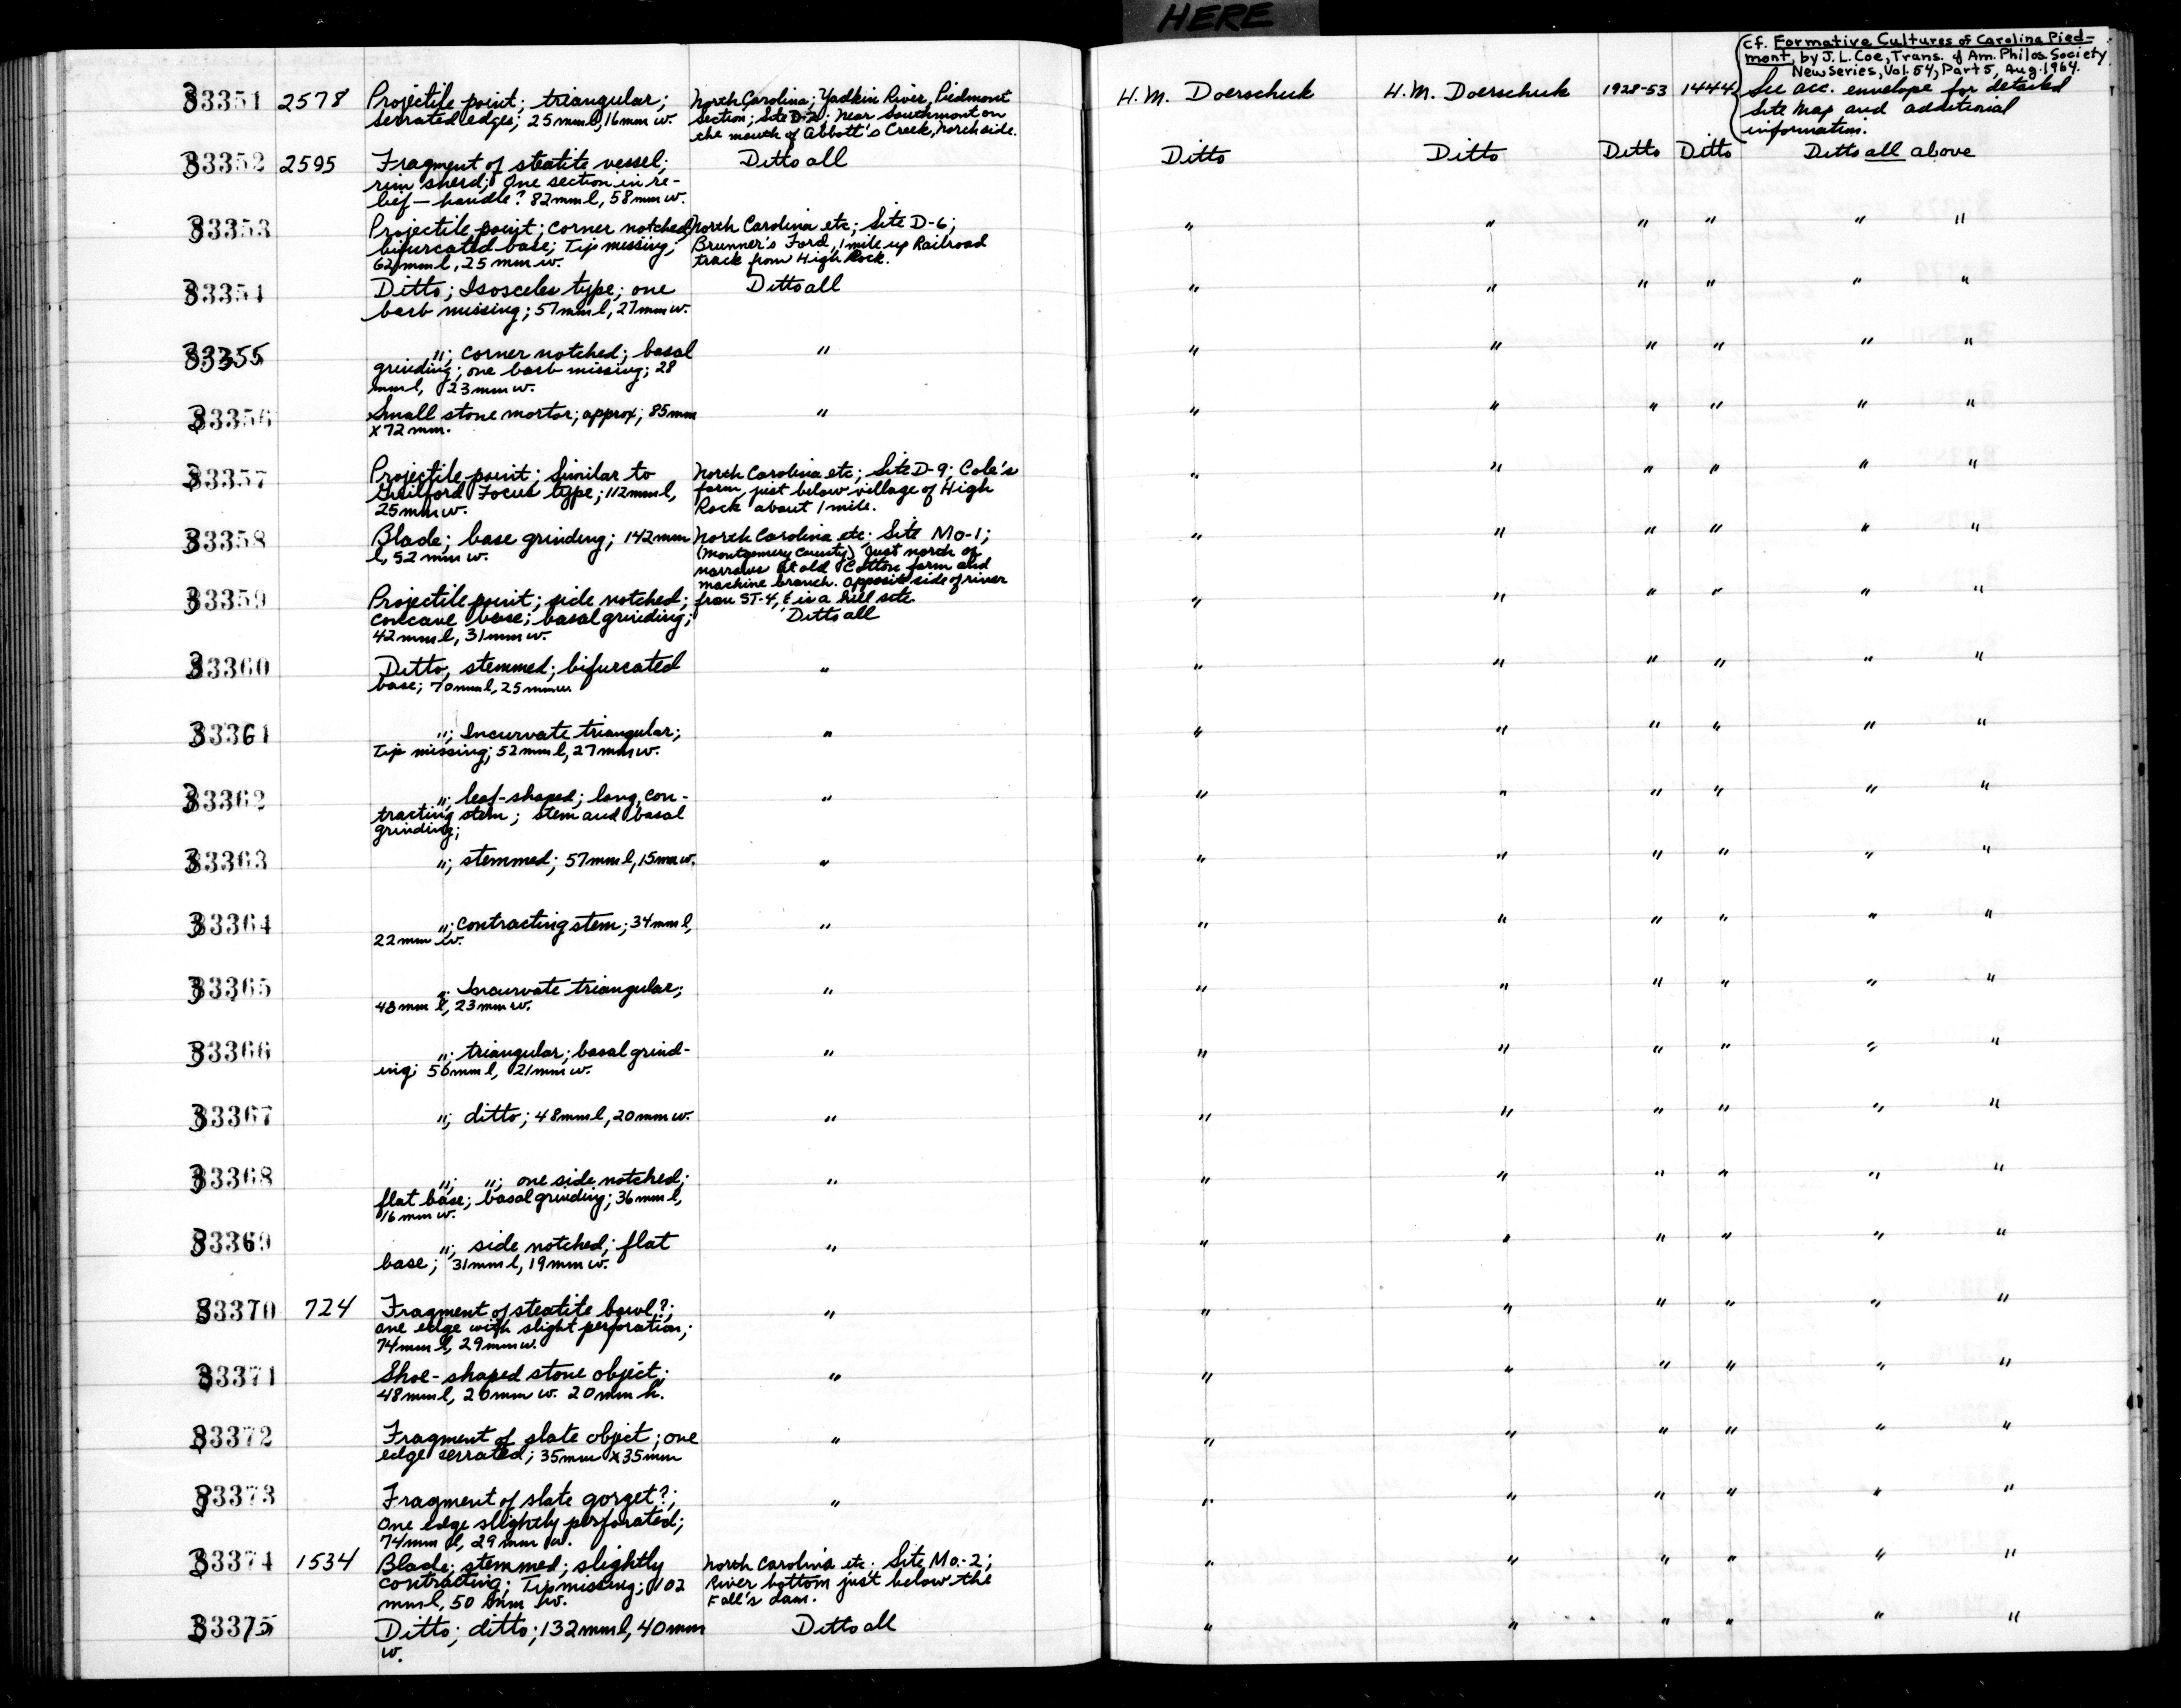 HERE
cf. Formative Cultures of Carolina Pied-
mont, by J.L. Coe, Trans. of Am. Philos. Society
New Series, Vol. 54, Part 5, Aug. 1964.
33351 2578 Projectile point; triangular; North Carolina; Yadkin River, Piedmont H.M. Doerschuk H.M. Doerschuk 1928-53 1444 See acc. envelope for detailed
serrated edges; 25mm l, 16mm w. section; Site D-2; Near Southmont on Site Map and additional
the mouth of Abbott's Creek, North side. information.
33352 2595 Fragment of steatite vessel; Ditto all Ditto Ditto Ditto Ditto Ditto all above
rim sherd; One section in re-
lief — handle? 82mm l, 58mm w.
33353 Projectile point; corner notched North Carolina etc; Site D-6; " " " " " "
bifurcated base; Tip missing; Brunner's Ford, 1 mile up Railroad
62mm l, 25mm w. track from High Rock.
33354 Ditto; Isosceles type; one Ditto all " " " " " "
barb missing; 57mm l, 27mm w.
33355 "; corner notched; basal " " " " " " "
grinding; one barb missing; 28
mm l, 23mm w.
33356 Small stone mortar; approx; 85mm " " " " " " "
x 72mm.
33357 Projectile point; Similar to North Carolina etc; Site D-9; Cole's " " " " " "
Guilford Focus type; 112mm l, farm, just below village of High
25mm w. Rock about 1 mile.
33358 Blade; base grinding; 142mm North Carolina etc; Site Mo-1; " " " " " "
l, 52mm w. (Montgomery County) Just north of
narrows at old Cotton farm and
machine branch. Opposite side of river
33359 Projectile point; side notched; from ST-4, & is a hill site. " " " " " "
concave base; basal grinding; Ditto all
42mm l, 31mm w.
33360 Ditto, stemmed; bifurcated " " " " " " "
base; 70mm l, 25mm w
33361 "; Incurvate triangular; " " " " " " "
Tip missing; 52mm l, 27mm w.
33362 "; leaf-shaped; long, con- " " " " " " "
tracting stem; stem and basal
grinding;
33363 "; stemmed; 57mm l, 15mm w. " " " " " " "
33364 "; contracting stem; 34mm l, " " " " " " "
22mm w.
33365 "; Incurvate triangular; " " " " " " "
48mm l, 23mm w.
33366 "; triangular; basal grind- " " " " " " "
ing; 56mm l, 21mm w.
33367 "; ditto; 48mm l, 20mm w. " " " " " " "
33368 "; "; one side notched; " " " " " " "
flat base; basal grinding; 36mm l,
16mm w.
33369 "; side notched; flat " " " " " " "
base; 31mm l, 19mm w.
33370 724 Fragment of steatite bowl?; " " " " " " "
one edge with slight perforation;
74mm l, 29mm w.
33371 Shoe-shaped stone object; " " " " " " "
48mm l, 20mm w. 20mm h.
33372 Fragment of slate object; one " " " " " " "
edge serrated; 35mm x 35mm
33373 Fragment of slate gorget?; " " " " " " "
One edge slightly perforated;
74mm l, 29mm w.
33374 1534 Blade; stemmed; slightly North Carolina etc. Site Mo.-2; " " " " " "
contracting; Tip missing; 102 River bottom just below the
mm l, 50 mm w. Fall's dam.
33375 Ditto; ditto; 132mm l, 40mm Ditto all " " " " " "
w.